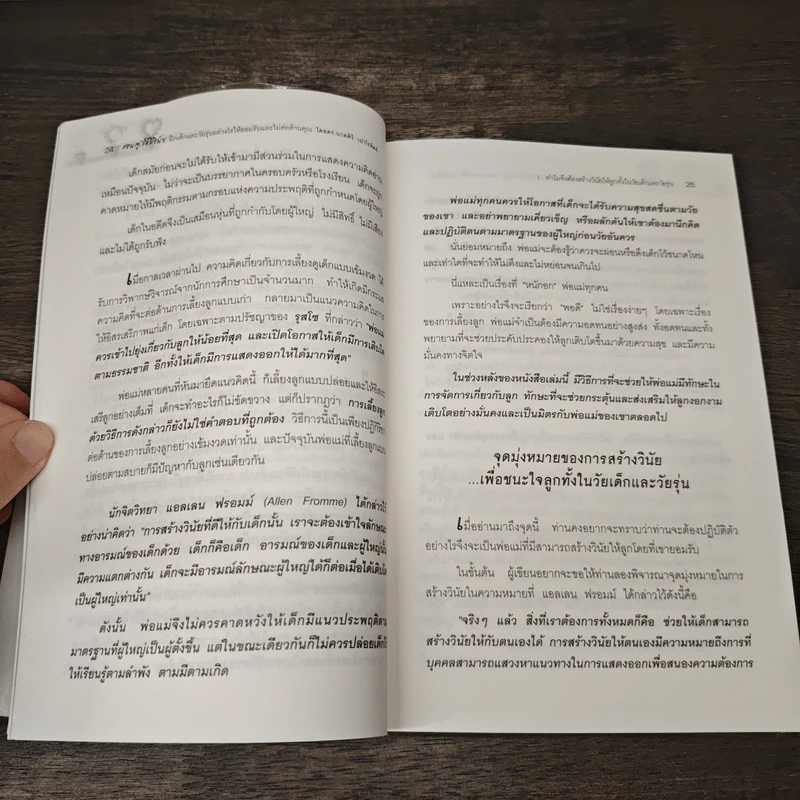 24 ฝึกเด็กและวัยรุ่นอย่างไรให้ยอมรับและไม่ต่อต้านคุณ
เด็กสมัยก่อนจะไม่ได้รับให้เข้ามามีส่วนร่วมในการแสดงความคิดอ่าน
เหมือนปัจจุบัน ไม่ว่าจะเป็นบรรยากาศในครอบครัวหรือโรงเรียน เด็กจะถูก
คาดหมายให้มีพฤติกรรมตามกรอบแห่งความประพฤติที่ถูกกำหนดโดยผู้ใหญ่
เด็กในอดีตจึงเป็นเสมือนหุ่นที่ถูกกำกับโดยผู้ใหญ่ ไม่มีสิทธิ์ ไม่มีเสียง
และไม่ได้ถูกรับฟัง
เมื่อกาลเวลาผ่านไป ความคิดเกี่ยวกับการเลี้ยงดูเด็กแบบเข้มงวด ได้
รับการวิพากษ์วิจารณ์จากนักการศึกษาเป็นจำนวนมาก ทำให้เกิดมีกระแส
ความคิดที่จะต่อต้านการเลี้ยงลูกแบบเก่า กลายมาเป็นแนวความคิดในการ
ให้อิสระเสรีภาพแก่เด็ก โดยเฉพาะตามปรัชญาของ รุสโซ ที่กล่าวว่า "พ่อแม่
ควรเข้าไปยุ่งเกี่ยวกับลูกให้น้อยที่สุด และเปิดโอกาสให้เด็กมีการเติบโต
ตามธรรมชาติ อีกทั้งให้เด็กมีการแสดงออกให้ได้มากที่สุด"
พ่อแม่หลายคนที่หันมายึดแนวคิดนี้ ก็เลี้ยงลูกแบบปล่อยและให้อิสระ
เสรีลูกอย่างเต็มที่ เด็กจะทำอะไรก็ไม่ขัดขวาง แต่ก็ปรากฏว่า การเลี้ยงลูก
ด้วยวิธีการดังกล่าวก็ยังไม่ใช่คำตอบที่ถูกต้อง วิธีการนี้เป็นเพียงปฏิกิริยา
ต่อต้านของการเลี้ยงลูกอย่างเข้มงวดเท่านั้น และปัจจุบันพ่อแม่ที่เลี้ยงลูกแบบ
ปล่อยตามสบายก็มีปัญหากับลูกเช่นเดียวกัน
นักจิตวิทยา แอลเลน ฟรอมม์ (Allen Fromme) ได้กล่าวไว้
อย่างน่าคิดว่า "การสร้างวินัยที่ดีให้กับเด็กนั้น เราจะต้องเข้าใจลักษณะ
ทางอารมณ์ของเด็กด้วย เด็กก็คือเด็ก อารมณ์ของเด็กและผู้ใหญ่นั้น
มีความแตกต่างกัน เด็กจะมีอารมณ์ลักษณะผู้ใหญ่ได้ก็ต่อเมื่อได้เติบโต
เป็นผู้ใหญ่เท่านั้น"
ดังนั้น พ่อแม่จึงไม่ควรคาดหวังให้เด็กมีแนวประพฤติตาม
มาตรฐานที่ผู้ใหญ่เป็นผู้ตั้งขึ้น แต่ในขณะเดียวกันก็ไม่ควรปล่อยเด็ก
ให้เรียนรู้ตามลำพัง ตามมีตามเกิด
1. ทำไมจึงต้องสร้างวินัยให้ลูกทั้งในวัยเด็กและวัยรุ่น 25
พ่อแม่ทุกคนควรให้โอกาสที่เด็กจะได้รับความสุขสดชื่นตามวัย
ของเขา และอย่าพยายามเคี่ยวเข็ญ หรือผลักดันให้เขาต้องมานึกคิด
และปฏิบัติตนตามมาตรฐานของผู้ใหญ่ก่อนวัยอันควร
นั่นย่อมหมายถึง พ่อแม่จะต้องรู้ว่าควรจะผ่อนหรือดึงเด็กไว้ขนาดไหน
และเท่าใดที่จะทำให้ไม่ตึงและไม่หย่อนจนเกินไป
นี่แหละเป็นเรื่องที่ "หนักอก" พ่อแม่ทุกคน
เพราะอย่างไรจึงจะเรียกว่า "พอดี" ไม่ใช่เรื่องง่ายๆ โดยเฉพาะเรื่อง
ของการเลี้ยงลูก พ่อแม่จำเป็นต้องมีความอดทนอย่างสูงส่ง ทั้งอดทนและทั้ง
พยายามที่จะช่วยประคับประคองให้ลูกเติบโตขึ้นมาด้วยความสุข และมีความ
มั่นคงทางจิตใจ
ในช่วงหลังของหนังสือเล่มนี้ มีวิธีการที่จะช่วยให้พ่อแม่มีทักษะใน
การจัดการเกี่ยวกับลูก ทักษะที่จะช่วยกระตุ้นและส่งเสริมให้ลูกงอกงาม
เติบโตอย่างมั่นคงและเป็นมิตรกับพ่อแม่ของเขาตลอดไป
จุดมุ่งหมายของการสร้างวินัย
...เพื่อชนะใจลูกทั้งในวัยเด็กและวัยรุ่น
เมื่ออ่านมาถึงจุดนี้ ท่านคงอยากจะทราบว่าท่านจะต้องปฏิบัติตัว
อย่างไรจึงจะเป็นพ่อแม่ที่มีสามารถสร้างวินัยให้ลูกโดยที่เขายอมรับ
ในขั้นต้น ผู้เขียนอยากจะขอให้ท่านลองพิจารณาจุดมุ่งหมายในการ
สร้างวินัยในความหมายที่ แอลเลน ฟรอมม์ ได้กล่าวไว้ดังนี้คือ
"จริงๆ แล้ว สิ่งที่เราต้องการทั้งหมดก็คือ ช่วยให้เด็กสามารถ
สร้างวินัยให้กับตนเองได้ การสร้างวินัยให้ตนเองมีความหมายถึงการที่
บุคคลสามารถแสวงหาแนวทางในการแสดงออกเพื่อสนองความต้องการ